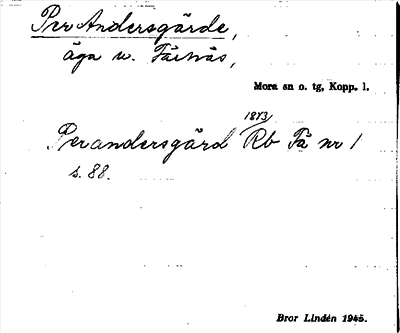 Per Andersgärde,
äga w. Färnäs,
Mora sn o. tg, Kopp. l.
Perandersgärd 1873/ Rb Fä nr 1
s. 88.
Bror Lindén 1945.